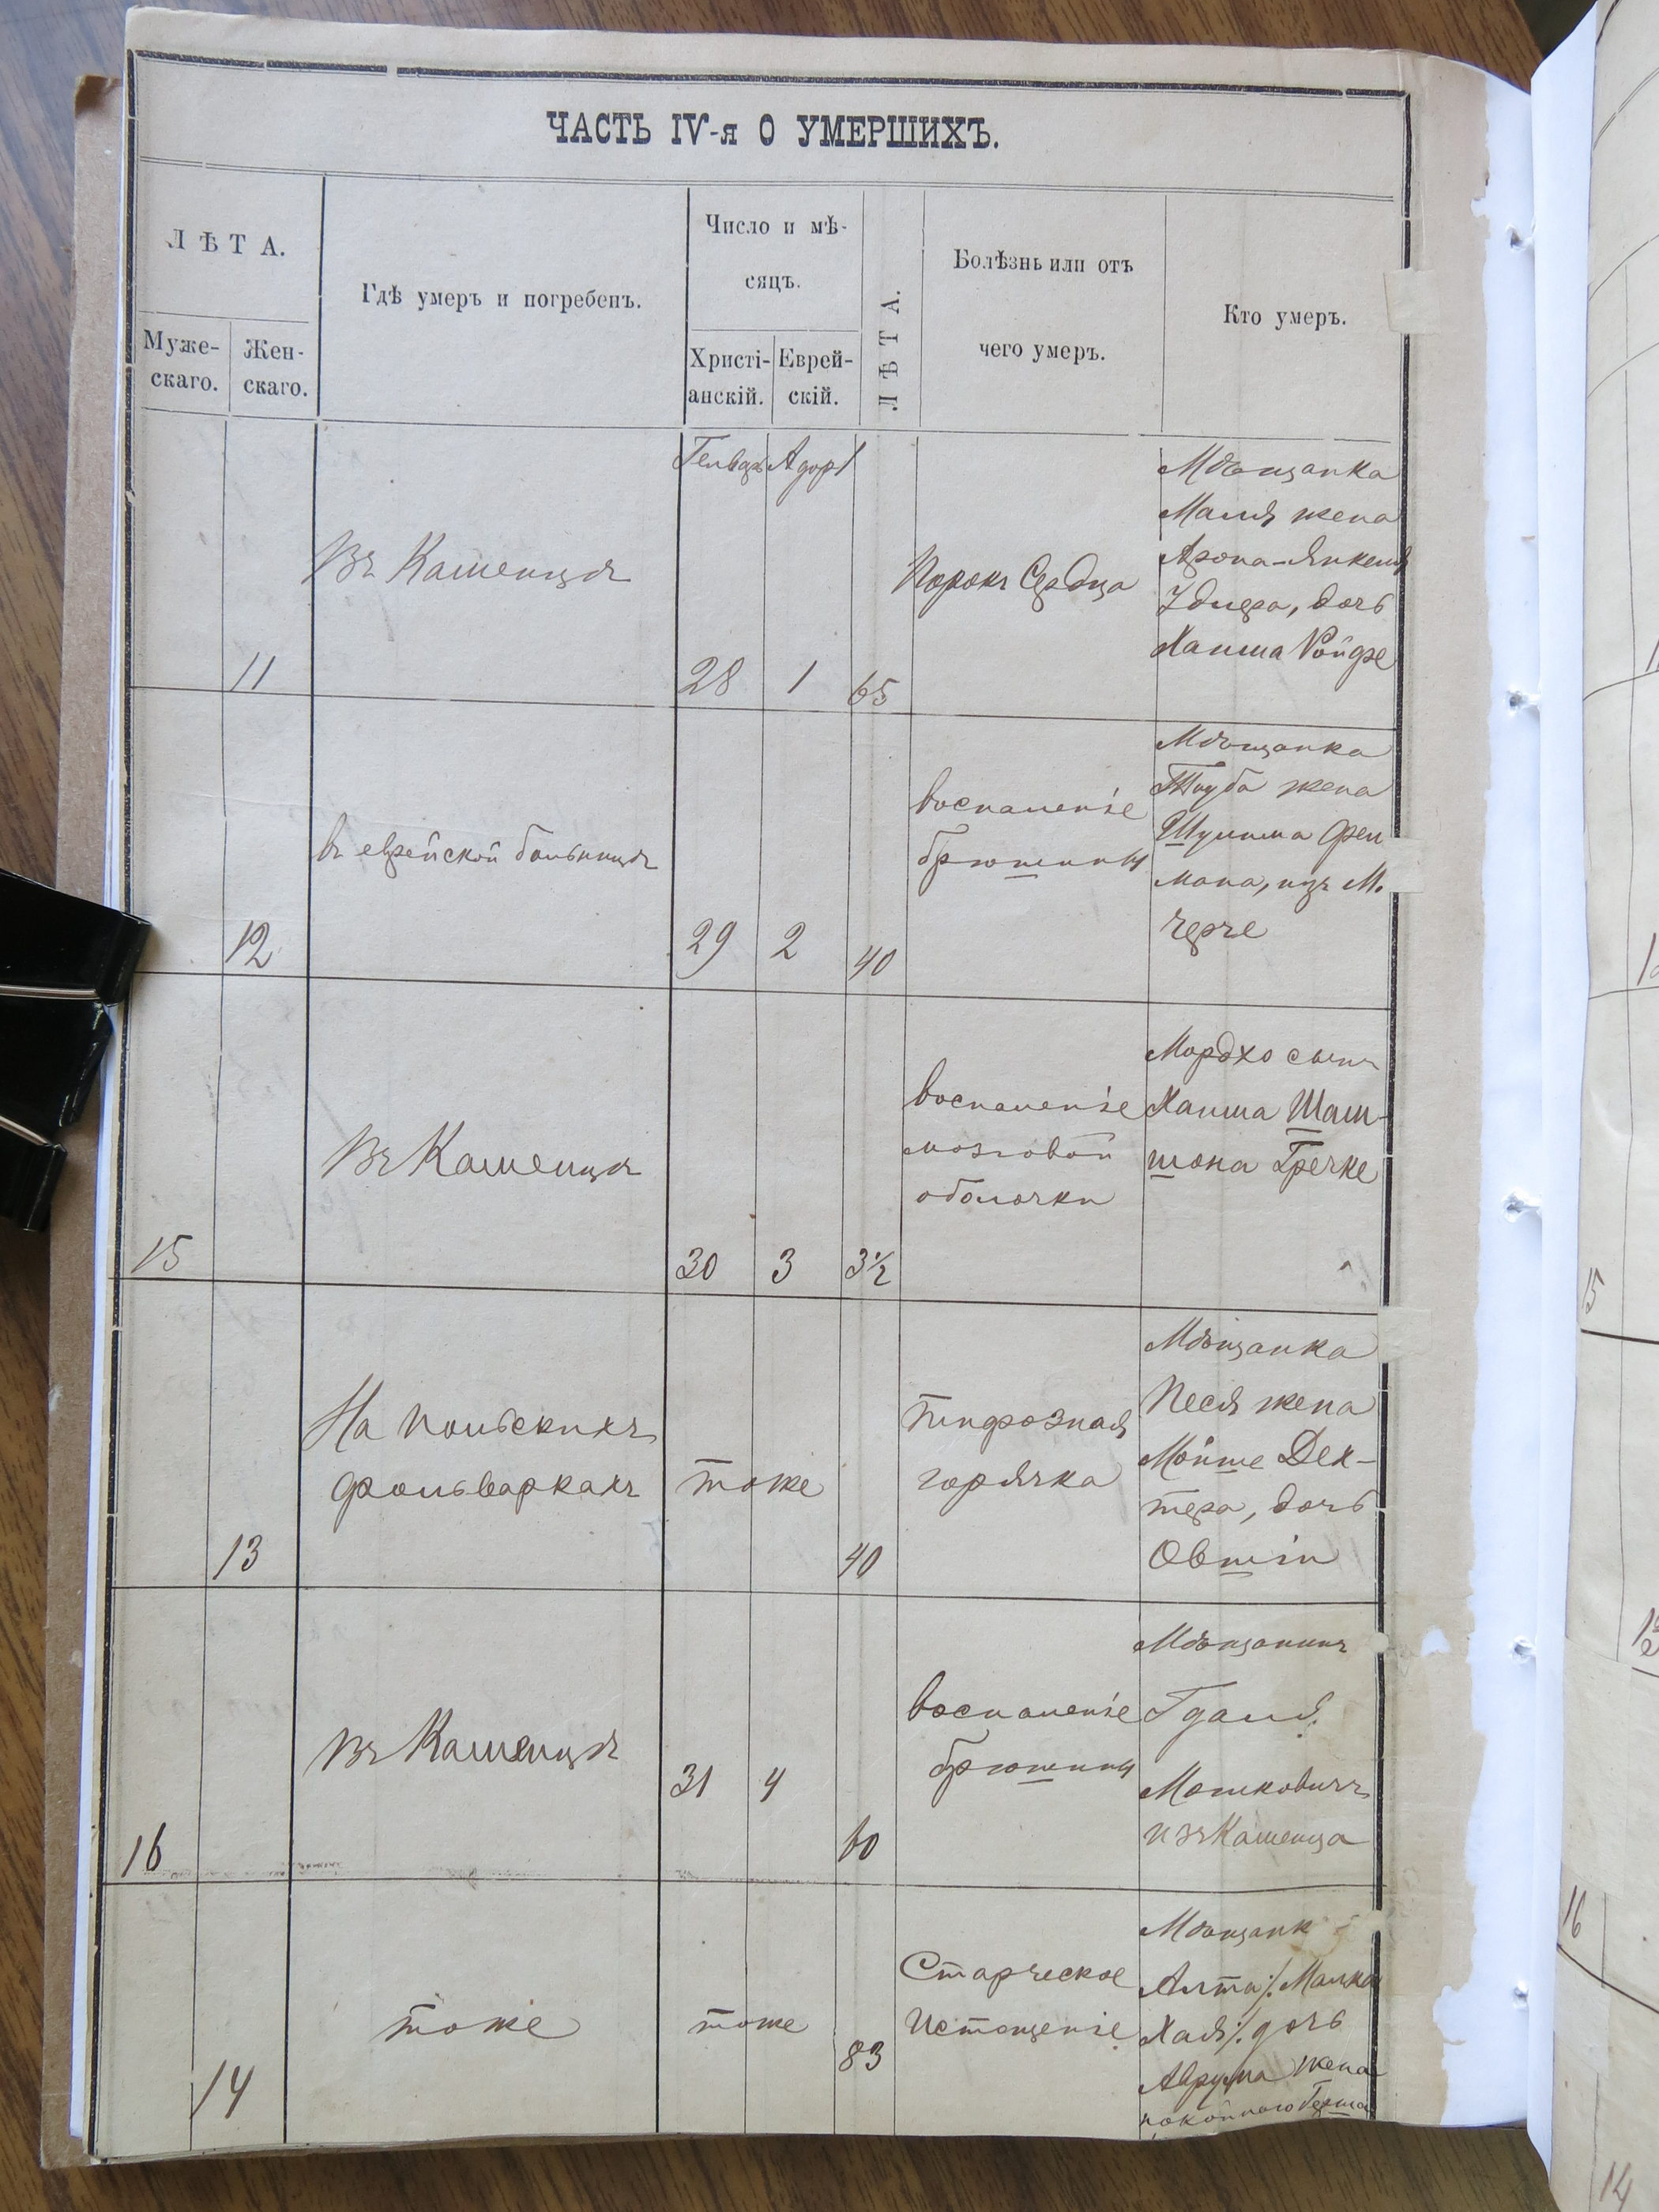 ЧАСТЬ IV-я О УМЕРШИХЪ.
ЛѢТА.
Муже-
скаго.
Жен-
скаго.
Гдѣ умеръ и погребенъ.
Число и мѣ-
сяцъ.
Христі-
анскій.
Еврей-
скій.
ЛѢТА.
Болѣзнь или отъ
чего умеръ.
Кто умеръ.
11
Въ Каменцѣ
28
1
65
Порокъ Сердца
Мѣщанка
Маля жена
Арона-Янкеля
дочь
Хаима
12
въ еврейской больницѣ
29
2
40
воспаленіе
брюшины
Мѣщанка
Тауба жена
Шулима Фел
мана, изъ М.
Черче
15
Въ Каменцѣ
30
3
3½
воспаленіе
мозговой
оболочки
Мордхо сынъ
Хаима Шам-
шона Гречке
13
На польскихъ
фольваркахъ
тоже
40
тифозная
горячка
Мѣщанка
Песя жена
Мойше Дех-
тера, дочь
Овшіи
16
Въ Каменцѣ
31
4
60
воспаленіе
брюшины
Мѣщанинъ
Гдаля
Мошковичъ
изъ Каменца
14
тоже
тоже
83
Старческое
Истощеніе
Мѣщанк
Алта /: Малка
Хая :/ дочь
Аврума жена
покойнаго Герша